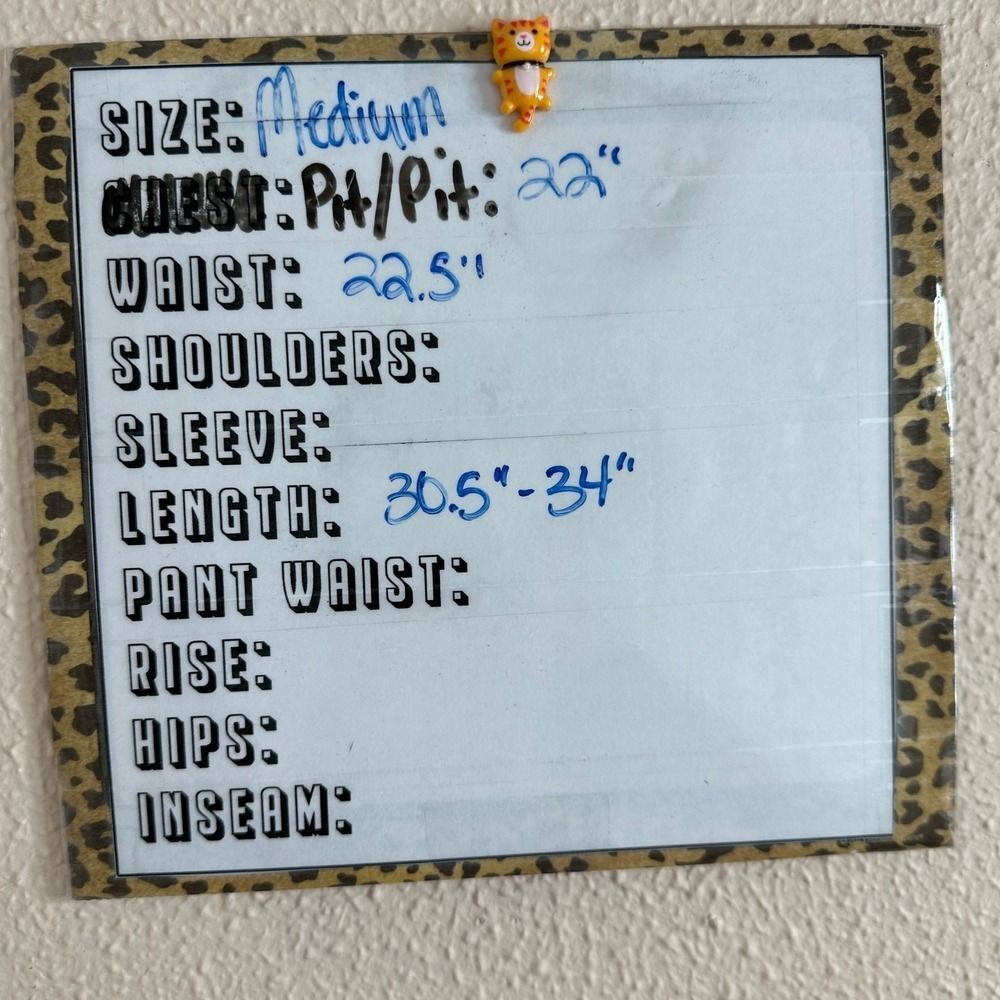 SIZE: Medium
CHEST: Pit/Pit: 22"
WAIST: 22.5"
SHOULDERS:
SLEEVE:
LENGTH: 30.5"-34"
PANT WAIST:
RISE:
HIPS:
INSEAM: